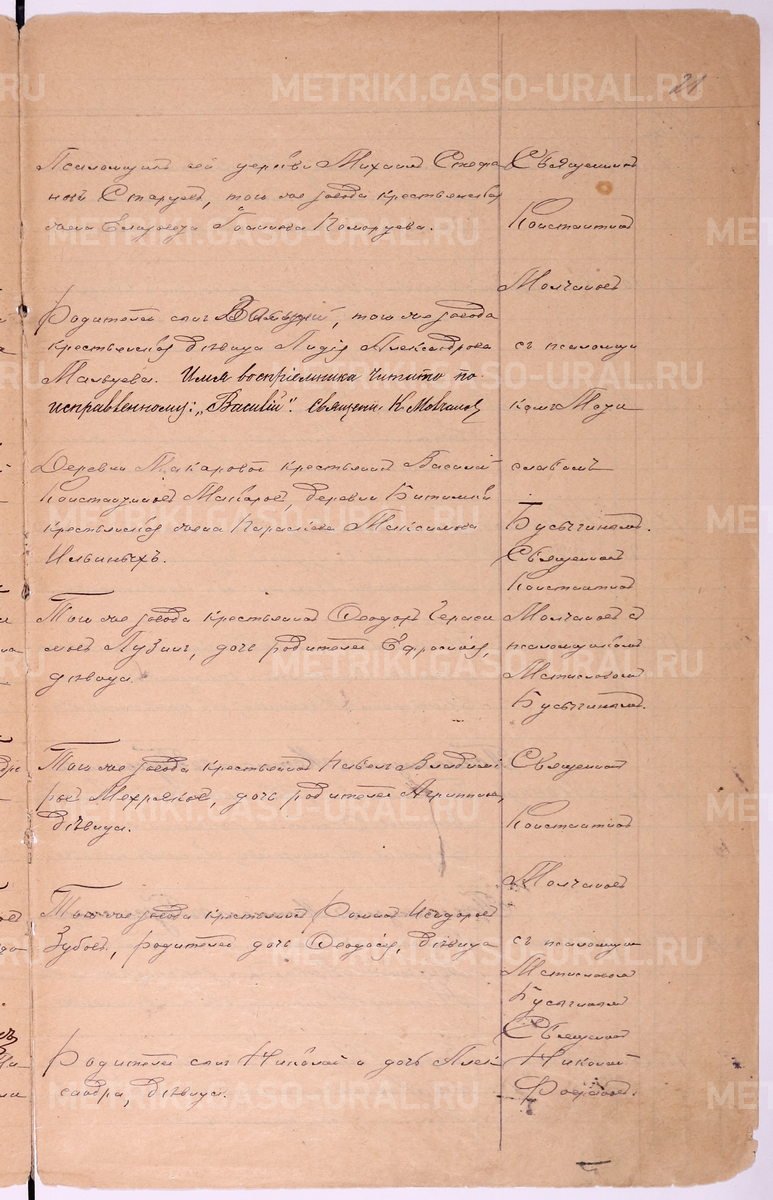 21
Псаломщикъ сей церкви Михаилъ Стефа
новъ Старцевъ, того же завода крестьянская
жена Елизавета Іоаннова Комарцева.
Родителей сынъ Василій, того же завода
крестьянская дѣвица Лидія Александрова
Мальцева. Имя воспріемника читать по
исправленному: „Василій". Священ. К Молчановъ
Деревни Макаровой крестьянинъ Василій
Константиновъ Макаровъ, деревни Битимки
крестьянская жена Параскева Максимова
Ильиныхъ.
Того же завода крестьянинъ Ѳеодоръ Гераси
мовъ Пузинъ, дочь родителей Ефросинія,
дѣвица.
Того же завода крестьянинъ Павелъ Владимі
ровъ Мехряковъ, дочь родителей Агриппина,
дѣвица.
Того же завода крестьянинъ Романъ Исидоровъ
Зубовъ, родителей дочь Ѳеодосія, дѣвица
Родителей сынъ Николай и дочь Алек
сандра, дѣвица.
Священникъ
Константинъ
Молчановъ
съ псаломщи
комъ Мсти
славомъ
Бусыгинымъ.
Священникъ
Константинъ
Молчановъ съ
псаломщикомъ
Мстиславомъ
Бусыгинымъ.
Священникъ
Константинъ
Молчановъ
съ псаломщи
Мстиславомъ
Бусыгинымъ
Священникъ
Николай
METRIKI.GASO-URAL.RU